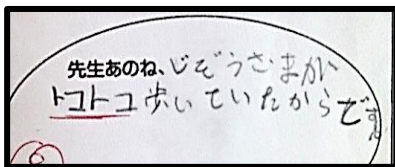 先生あのね、じぞうさまが
トコトコ歩いていたからです。
6